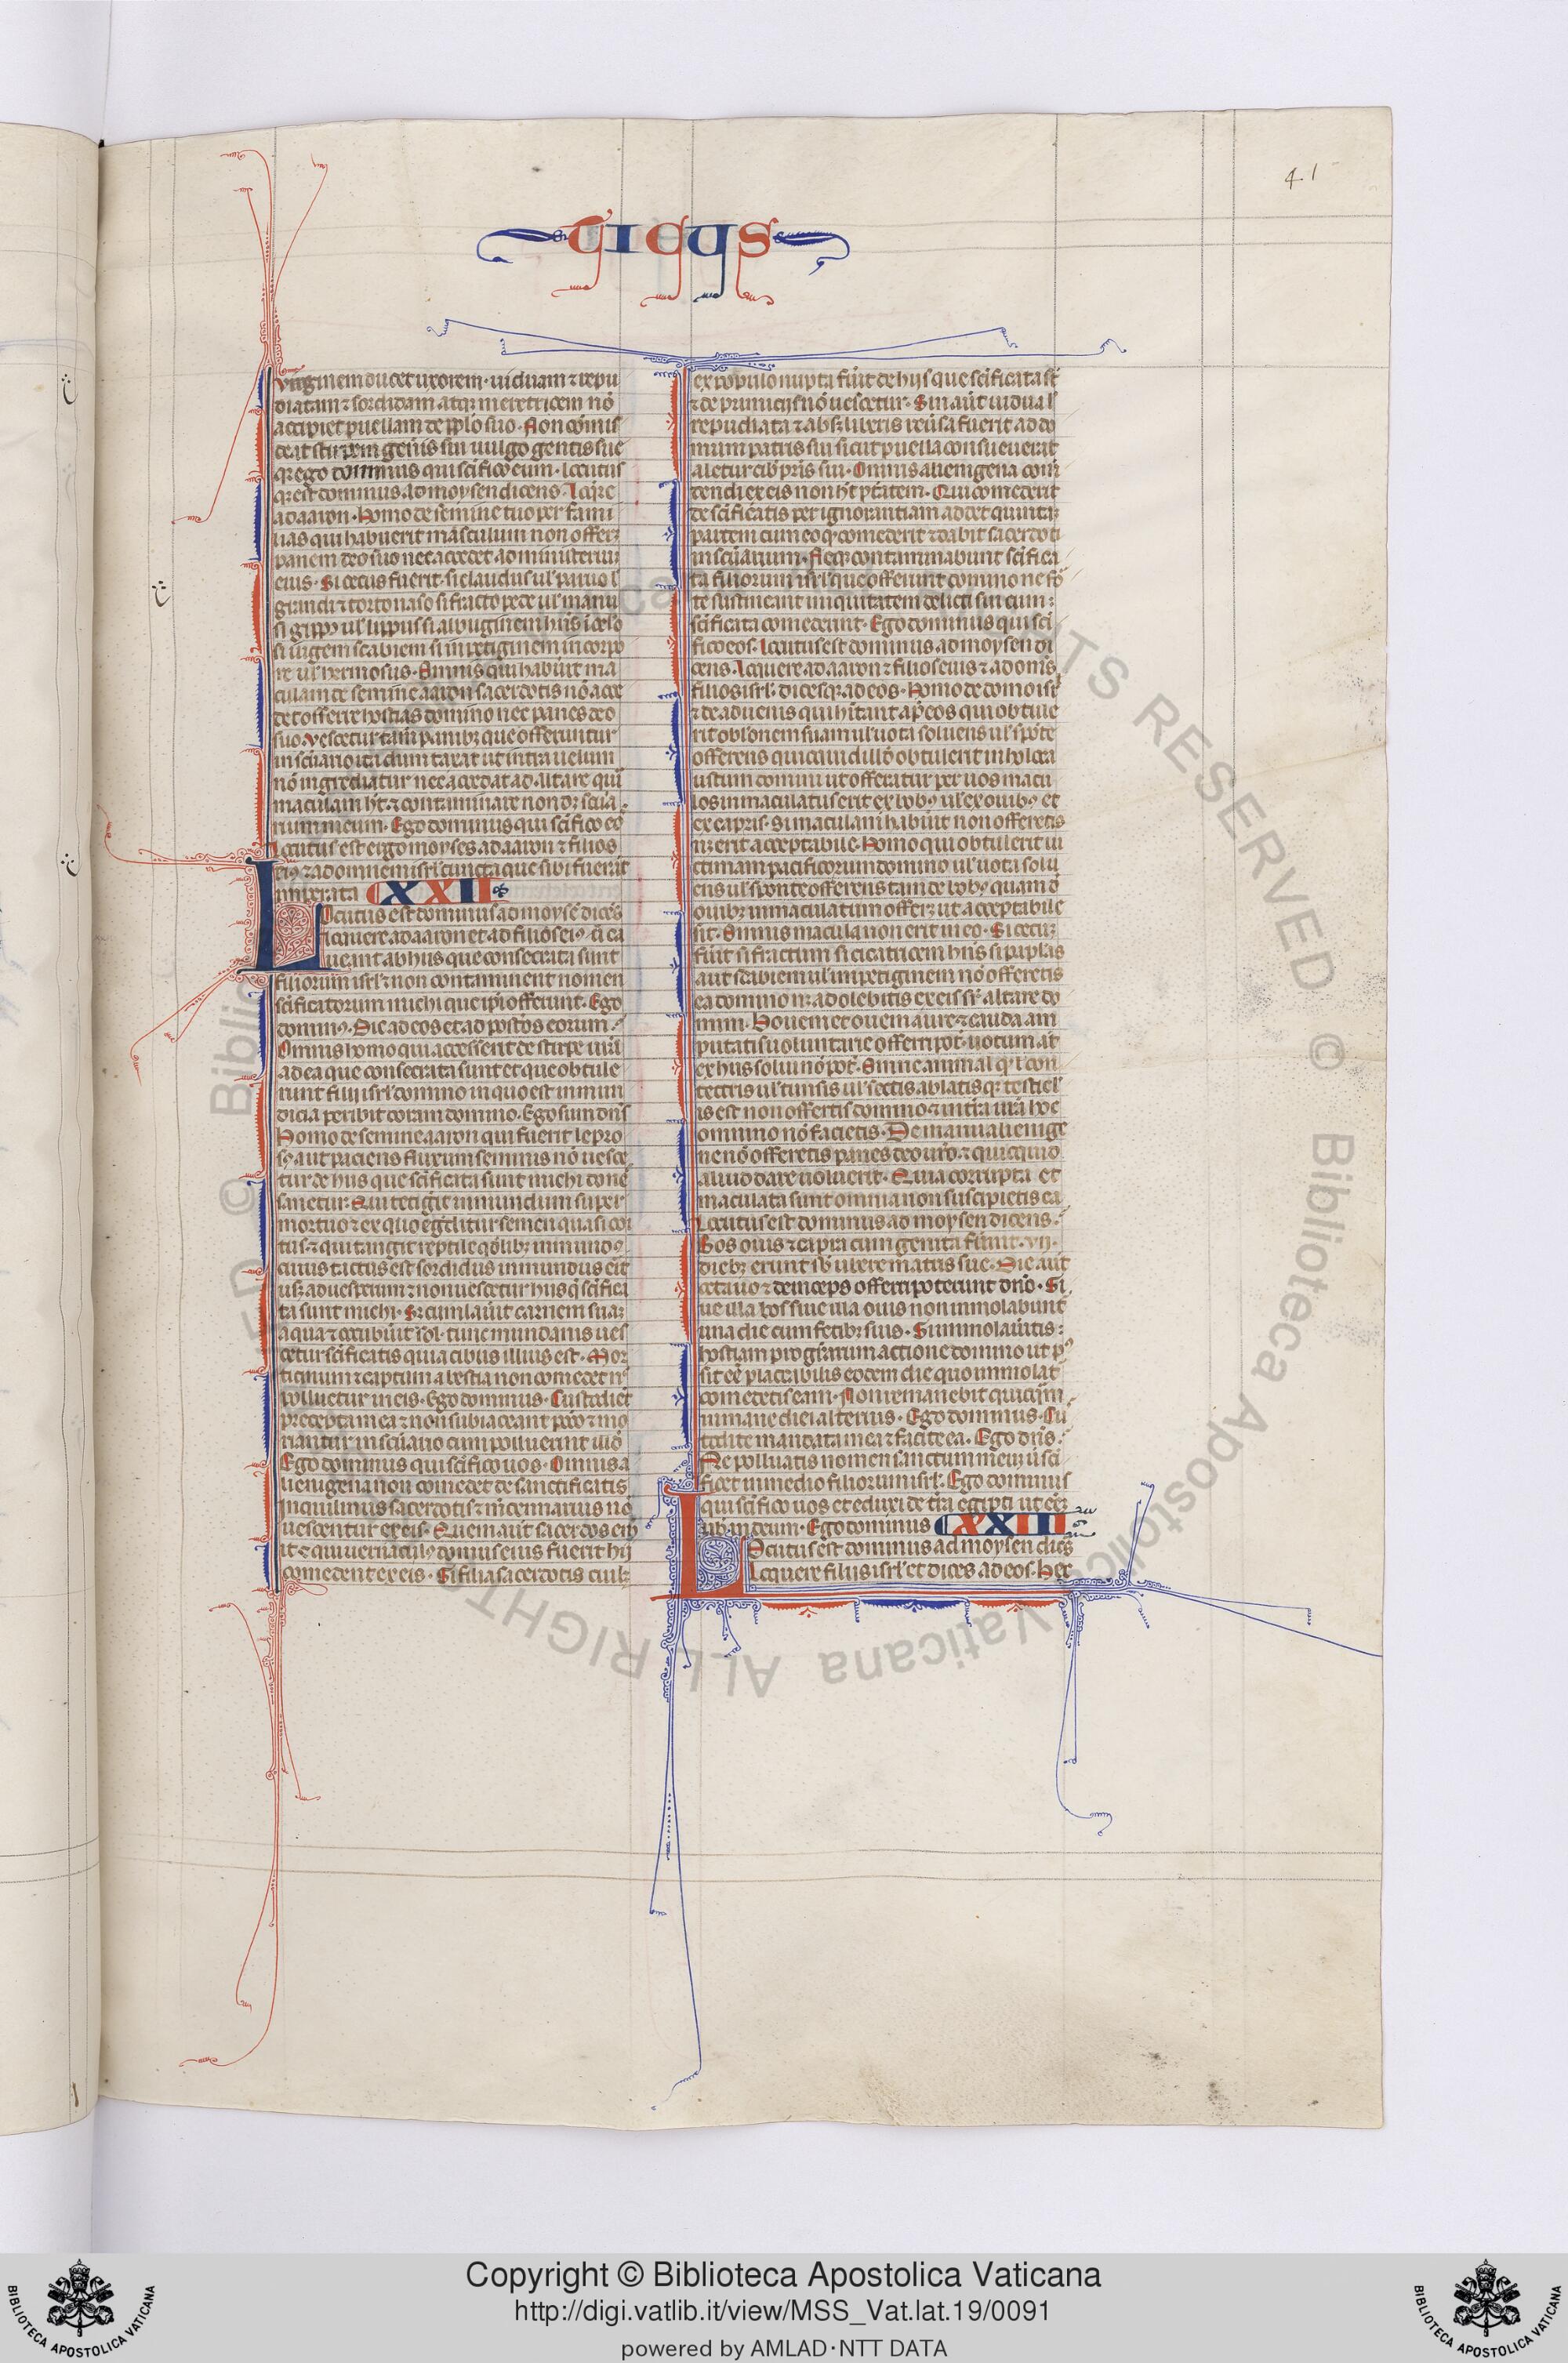 41
TICUS
virginem ducet uxorem · uiduam ⁊ repu
diatam ⁊ sordidam atq; meretricem nō
accipiet puellam de pp̄lo suo · Non cōmis
ceat stirpem gen̄is sui uulgo gentis sue
qr̄ ego dominus qui sc̄ifico eum · Locutus
q; est dominus ad moysen dicens · Loq̄re
ad aaron · Homo de semine tuo per fami
lias qui habuerit maculum non offerꝫ
panem deo suo nec accedet ad ministeriū
eius · Si cecus fuerit · si claudus ul̄ paruo l̄
grandi ⁊ torto naso si fracto pede ul̄ manu
si gippꝰ ul̄ lippus si albuginem hn̄s ī oclo
si iūgem scabiem si inpetiginem in corpo
re ul̄ herniosus · Omnis qui habūit ma
culam de semine aaron sacerdotis nō acce
det offerre hostias domino nec panes deo
suo · Vescetur tam̄ panibꝫ que offeruntur
in sc̄uario ita dum taxat ut intra uelum
nō ingrediatur nec accedat ad altare qui
maculam ht̄ ⁊ contaminare non dꝫ sc̄ua
rium meum · Ego dominus qui sc̄ifico eō
Locutus est ergo moyses ad aaron ⁊ filios
eiꝰ ⁊ ad omnem isrl̄ cuncta que sibi fuerāt
imperata CXXII
Locutus est dominus ad moysē dicēs
loquere ad aaron et ad filios eiꝰ · ut ca
ueant ab hiis que consecrata sunt
filiorum isrl̄ ⁊ non contaminent nomen
sc̄ificatorum michi que ip̄i offerunt · Ego
dominꝰ · Dic ad eos et ad post̄os eorum ·
Omnis homo qui accesserit de stirpe ur̄a
ad ea que consecrata sunt et que obtule
runt filii isrl̄ domino in quo est inmun
dicia peribit coram domino · Ego sum dn̄s
Homo de semine aaron qui fuerit lepro
sꝰ aut paciens fluxum seminis nō uesce
tur de hiis que sc̄ificata sunt michi donec
sanetur · Qui tetigerit inmundum super
mortuo ⁊ ex quo egreditur semen quasi coi
tus · ⁊ qui tangit reptile qd̄libꝫ inmundꝰ
cuius tactus est sordidus inmundus erit
usꝫ ad uesperum ⁊ non uescetur hiis q̄ sc̄ifica
ta sunt michi · Sꝫ cum lau̅it carnem suaꝫ
aqua ⁊ occubūit sol · tunc mundatus ues
cetur sc̄ificatis quia cibus illius est · Mor
ticinum ⁊ captum a bestia non comedet nec
polluetur in eis · Ego dominus · Custodiet
precepta mea ⁊ non subiaceant pecc̄o ⁊ mo
riantur in sc̄uario cum polluerint illd̄
Ego dominus qui sc̄ifico uos · Omnis a
lienigena non comedet de sanctificatis
inquilinus sacerdotis ⁊ m̄cennarius nō
uescentur ex eis · Quem aut̄ sacerdos em̄
it ⁊ qui uernaculꝰ domus eius fuerit hii
comedent ex eis · Si filia sacerdotis cuilꝫ
ex populo nupta fūit de hiis que sc̄ificata st̄
⁊ de primiciis nō uescetur · Sin aut̄ uidua l̄
repudiata ⁊ absꝫ liberis reu̅sa fuerit ad do
mum patris sui sicut puella consueuerat
aletur cib̄ pr̄is sui · Omnis alienigena com̄
dendi ex eis non ht̄ p̄tatem · Qui comederit
de sc̄ificatis per ignorantiam addet quintā
partem cum eo q̄ comederit ⁊ dabit sacerdoti
in sc̄uarium · Neq; contaminabunt sc̄ifica
ta filiorum isrl̄ que offerunt domino ne for
te sustineant iniquitatem delicti sui cum
sc̄ificata comederint · Ego dominus qui sc̄i
fico eos · Locutus est dominus ad moysen di
cens · Loquere ad aaron ⁊ filios eius ⁊ ad om̄s
filios isrl̄ · dicesq; ad eos · Homo de domo isrl̄
⁊ de aduenis qui hītant ap̄ eos qui obtule
rit obl̄onem suam ul̄ uota soluens ul̄ spōte
offerens quicquid illd̄ obtulerit in holoca
ustum domini ut offeratur per uos macu
los inmaculatus erit ex bobꝰ ul̄ ex ouibꝰ et
ex capris · Si maculam habūit non offeretis
nꝫ erit acceptabile · Homo qui obtulerit ui
ctimam pacificorum domino ul̄ uota solu
ens ul̄ sponte offerens tam de bobꝰ quam d̄
ouibꝫ inmaculatum offerꝫ ut acceptabile
sit · Omnis macula non erit in eo · Si cecuꝫ
fūit si fractum si cicatricem hn̄s si papulas
aut scabiem ul̄ inpetiginem nō offeretis
ea domino nꝫ adolebitis ex eis sr̄ altare do
mini · Bouem et ouem aure ⁊ cauda am
putatis uoluntarie offerri pot̄ · uotum at̄
ex hiis solui nō pot̄ · Omne animal q̄ l̄ con
tectris ul̄ tunsis ul̄ sectis ablatisq; testicl̄
is est non offertis domino ⁊ in tr̄a ur̄a hoc
omnino nō facietis · De manu alienige
ne nō offeretis panes deo ur̄o ⁊ quicquid
aliud dare uoluerit · Quia corrupta et
maculata sunt omnia non suscipietis ea
Locutus est dominus ad moysen dicens ·
Bos ouis ⁊ capra cum genita fūint · vii ·
diebꝫ erunt sb̄ ubere matris sue · Die aut̄
octauo ⁊ deinceps offerri poterunt dn̄o · Si
ue illa bos siue illa ouis non inmolabunt
una die cum fetibꝫ suis · Si inmolau̅itis
hostiam pro gr̄arum actione domino ut pꝰ
sit eē placabilis eodem die quo inmolat
comedetis eam · Non remanebit quicq̄m
in mane diei alterius · Ego dominus · Cu
stodite mandata mea ⁊ facite ea · Ego dn̄s ·
Ne polluatis nomen sanctum meuꝫ ut sc̄i
ficer in medio filiorum isrl̄ · Ego dominus
qui sc̄ifico uos et eduxi de tr̄a egipti ut eēꝫ
uob̄ in deum · Ego dominus CXXIII
Locutus est dominus ad moysen dicēs
Loquere filiis isrl̄ et dices ad eos · Hec
Copyright © Biblioteca Apostolica Vaticana
http://digi.vatlib.it/view/MSS_Vat.lat.19/0091
powered by AMLAD·NTT DATA
BIBLIOTECA APOSTOLICA VATICANA
BIBLIOTECA APOSTOLICA VATICANA
© Biblioteca Apostolica Vaticana ALL RIGHTS RESERVED